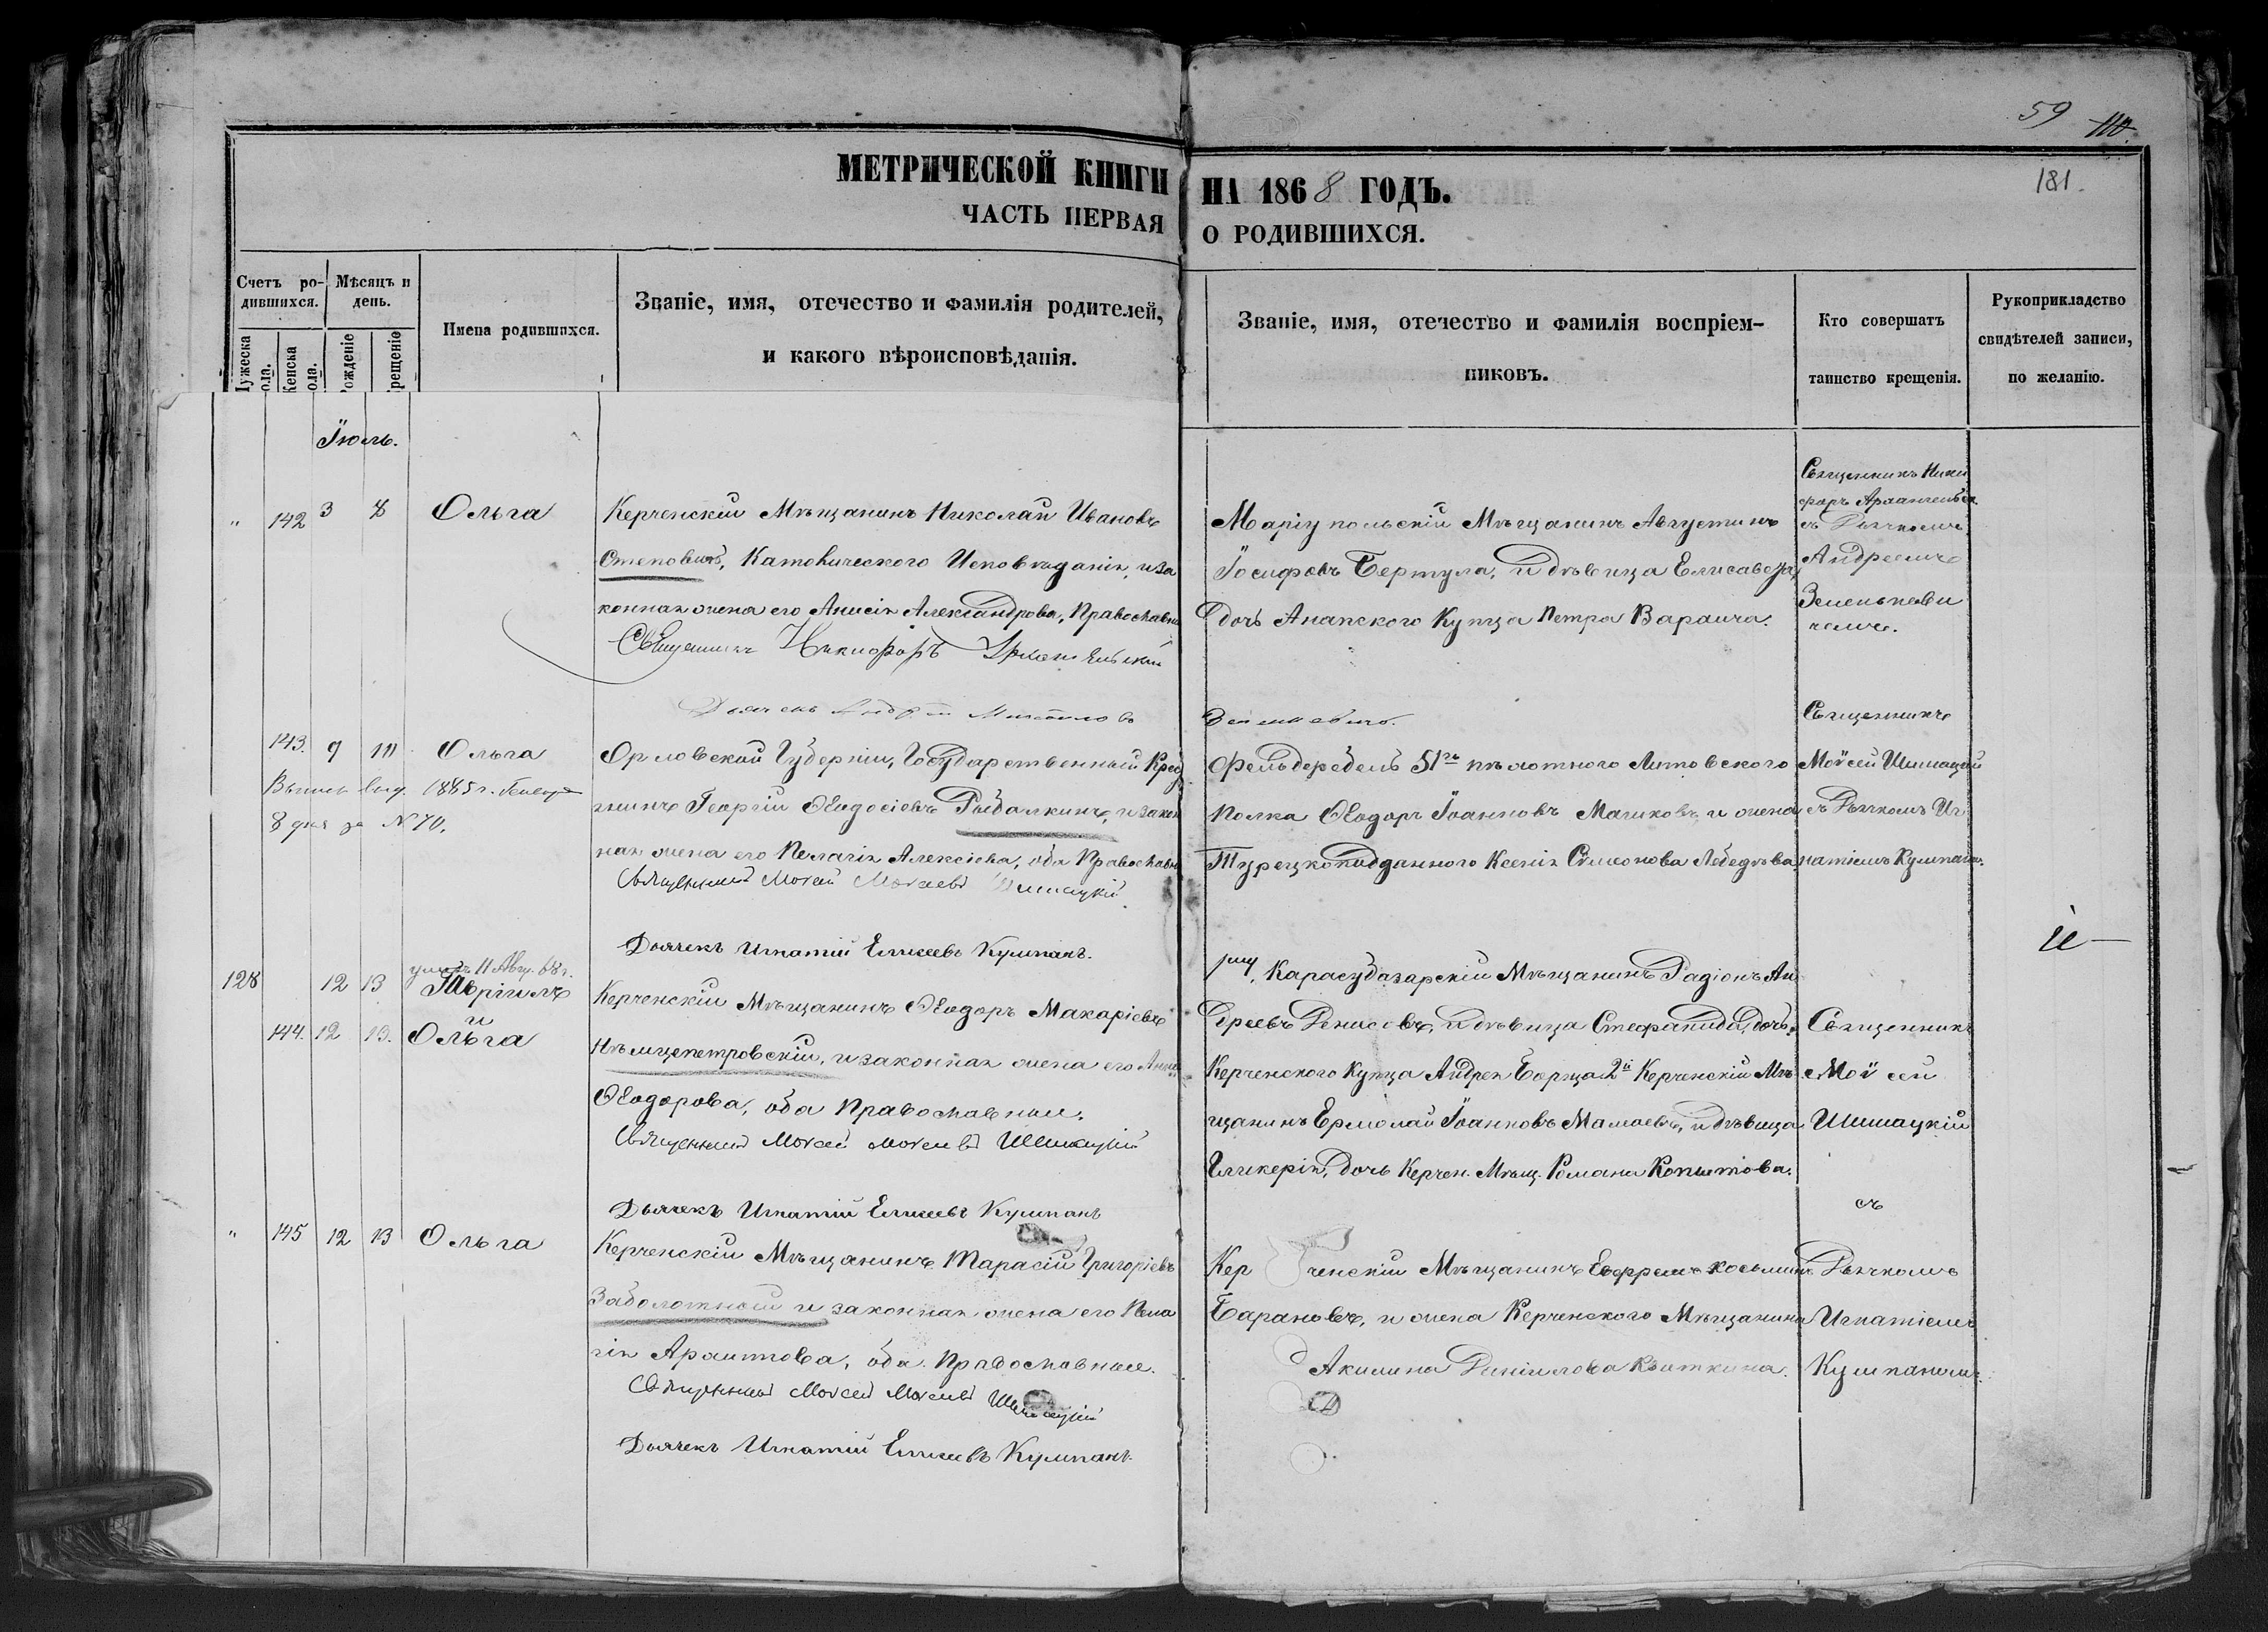 59
181.
МЕТРИЧЕСКОЙ КНИГИ НА 1868 ГОДЪ.
ЧАСТЬ ПЕРВАЯ О РОДИВШИХСЯ.
Счетъ ро-
дившихся.
Мѣсяцъ и
день.
Имена родившихся.
Званіе, имя, отечество и фамилія родителей,
и какого вѣроисповѣданія.
Званіе, имя, отечество и фамилія воспріем-
никовъ.
Кто совершатъ
таинство крещенія.
Рукоприкладство
свидѣтелей записи,
по желанію.
Іюль.
" 142 3 8 Ольга
Керченскій Мѣщанинъ Николай Ивановъ
Степовичъ, Католическаго Исповѣданія, и за
конная жена его Анисія Александрова, Православн
Священникъ Никифоръ Архангельскій
Дьячекъ Андрей
Зеленкевичъ.
Маріупольскій Мѣщанинъ Августинъ
Іосифовъ Бертула, и дѣвица Елисавета,
дочь Анапского Купца Петра Вараича.
Священникъ Ники
форъ Архангельск
съ Дьячкомъ
Андреемъ
Зеленькеви
чемъ.
143. 9 10 Ольга
Выпись выд. 1885 г. Генваря
8 дня за №70.
Орловской Губерніи, Государственный Крес
нинъ Георгій Ѳеодосіевъ Рыбалкинъ, и закон
ная жена его Пелагія Алексіева, оба Православн
Священникъ Моѵсей Моѵсеевъ Шишацкій
Дьячекъ Игнатій Елисеевъ Кумпанъ.
Фельдфебель 51го пѣхотного Литовского
Полка Ѳеодоръ Іоанновъ Машковъ, и жена
Турецкоподданного Ксенія Симеонова Лебедѣва.
Священникъ
Моѵсей Шишацкій
съ Дьячкомъ Иг
натіемъ Кумпан.
128 12 13 умеръ 11 Авгу. 68 г.
Гавріилъ
и
144. 12 13. Ольга
Керченскій Мѣщанинъ Ѳеодоръ Макаріевъ
Нѣмцепетровскій, и законная жена его Анна
Ѳеодорова, оба Православные.
Священникъ Моѵсей Моѵсеевъ Шишацкій
Дьячекъ Игнатій Елисеевъ Кумпанъ
Карасубазарскій Мѣщанинъ Радіонъ Ан
дреевъ Денисовъ, и дѣвица Стефанида, дочь
Керченского Купца Андрея Борща 2й Керченскій Мѣ
щанинъ Ермолай Іоанновъ Мамаевъ, и дѣвица
Гликерія, дочь Керчен. Мѣщ. Романа Копытова.
Священникъ
Моѵсей
Шишацкій
съ
Дьячкомъ
Игнатіемъ
Кумпаномъ.
" 145 12 13 Ольга
Керченскій Мѣщанинъ Тарасій Григоріевъ
Заболотный и законная жена его Пела
гія Архипова, оба Православные.
Священникъ Моѵсей Моѵсеевъ Шишацкій
Дьячекъ Игнатій Елисеевъ Кумпанъ.
Керченскій Мѣщанинъ Евфремъ Косьминъ
Барановъ, и жена Керченского Мѣщанина
Акилина Даніилова Квиткина.